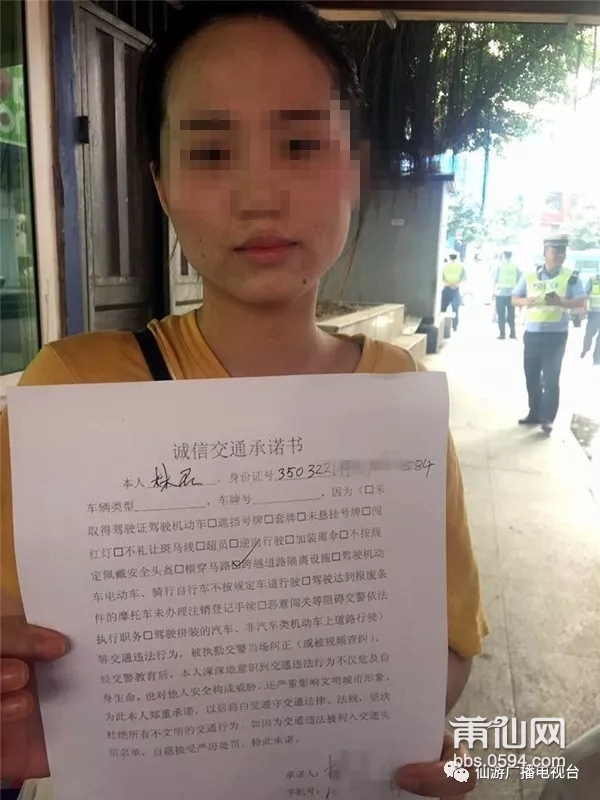 诚信交通承诺书
本人 林 ，身份证号350322 84
车辆类型 ，车牌号 ，因为（□未
取得驾驶证驾驶机动车□遮挡号牌□套牌□未悬挂号牌□闯
红灯□不礼让斑马线□超员□逆向行驶□加装雨伞□不按规
定佩戴安全头盔□横穿马路☑跨越道路隔离设施□驾驶机动
车电动车、骑行自行车不按规定车道行驶□驾驶达到报废条
件的摩托车未办理注销登记手续□恶意闯关等阻碍交警依法
执行职务□驾驶拼装的汽车、非汽车类机动车上道路行驶）
等交通违法行为，被执勤交警当场纠正（或被视频查纠），
经交警教育后，本人深深地意识到交通违法行为不仅危及自
身生命，也对他人安全构成威胁，还严重影响文明城市形象，
为此本人郑重承诺，以后将自觉遵守交通法律、法规，坚决
杜绝所有不文明的交通行为。如因为交通违法被列入交通失
信名单，自愿接受严厉处罚。特此承诺。
承诺人：
手机号：
莆仙网
bbs.0594.com
仙游广播电视台